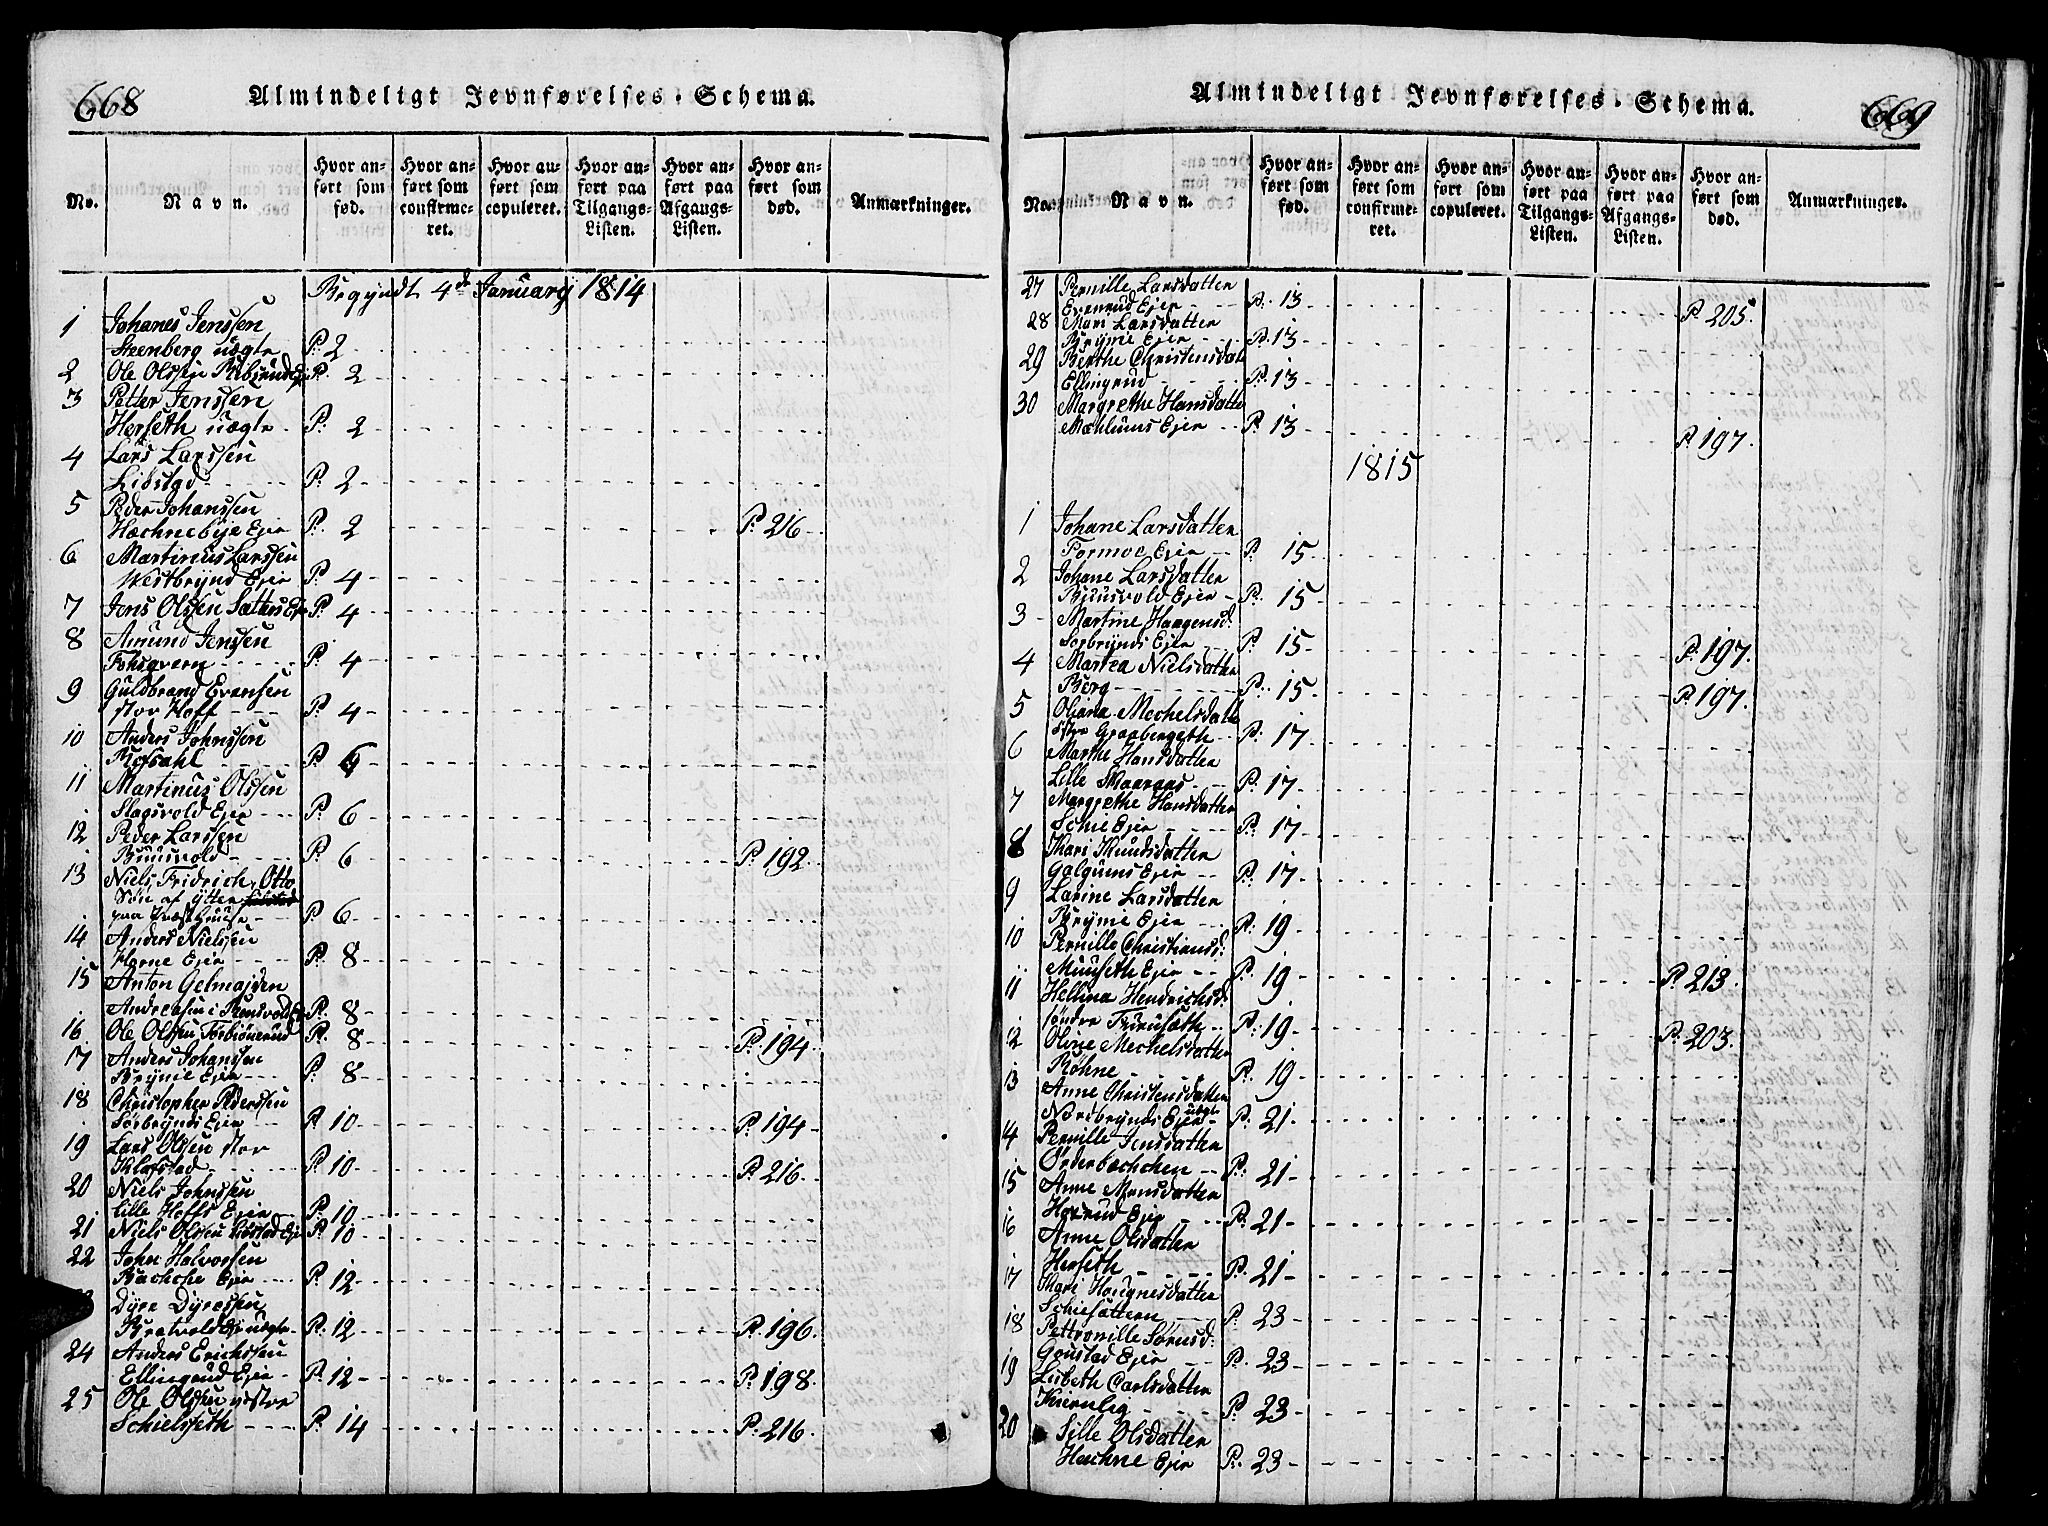 668
Almindeligt Jevnførelses-Schema.
No.
Navn.
Hvor anført som fød.
Hvor anført som confirmeret.
Hvor anført som copuleret.
Hvor anført paa Tilgangs-Listen.
Hvor anført paa Afgangs-Listen.
Hvor anført som død.
Anmærkninger.
Begyndt 4de Januarij 1814
1 Johanes Jenssen
Steenberg uægte P. 2
2 Ole Olssen P. 2
3 Petter Jenssen
Herseth uægte P. 2
4 Lars Larssen
Liøstad P. 2
5 Peder Johanssen
Hæchnebye Ejer P. 2 P. 216
6 Martinus Larssen
Westbrynd Ejer P. 4
7 Jens Olssen P. 4
8 Amund Jenssen
P. 4
9 Guldbrand Evensen
stor Hoff P. 4
10 Anders Johnssen
P. 6
11 Martinus Olssen
Slagsvold Ejer P. 6
12 Peder Larssen
P. 6 P. 192
13 Niels Fridrich Otto
Søn af Ytter
paa P. 6
14 Anders Nielssen
Horne Ejer P. 8
15 Anton
P. 8
16 Ole Olssen P. 8 P. 194
17 Anders Johanssen
Brynie Ejer P. 8
18 Christopher Pederssen
Sørbrynds Ejer P. 10 P. 194
19 Lars Olssen stor
Klafstad P. 10 P. 216
20 Niels Johnssen
Lille Hoffs Ejer P. 10
21 Niels Olssen P. 10
22 John Halvorsen
Bachche Ejer P. 12
Dyre Dyressen
uægte P. 12 P. 196
24 Anders Erichssen
Ellingrud Ejer P. 12 P. 198
25 Ole Olssen
Schielseth P. 14 P. 216
Almindeligt Jevnførelses-Schema.
669
No.
Navn.
Hvor anført som fød.
Hvor anført som confirmeret.
Hvor anført som copuleret.
Hvor anført paa Tilgangs-Listen.
Hvor anført paa Afgangs-Listen.
Hvor anført som død.
Anmærkninger.
27 Pernille Larsdatter
Evenrud Ejer P. 13 P. 205
28 Mari Larsdatter
Brynie Ejer P. 13
29 Berthe Christensdat
Ellingrud P. 13
30 Margrethe Hansdatter
Mæhlums Ejer P. 13 P. 197
1815
1 Johane Larsdatter
Formoe Ejer P. 15
2 Johane Larsdatter
Ejer P. 15
3 Martine Haagensd.
Sørbrynds Ejer P. 15 P. 197
4 Nielsdatter
Berg P. 15 P. 197
5 Oliana Mechelsdatt
P. 17
6 Marthe Hansdatter
Lille P. 17
7 Margrethe Hansdatter
Schie Ejer P. 17
8 Kari Knudsdatter
Ejer P. 17
9 Larine Larsdatter
Brynie Ejer P. 19
10 Pernille Christiansd.
Ejer P. 19 P. 213
11 Hellina Hendrichsd.
søndre P. 19 P. 203
12 Oline Mechelsdatter
Røhne P. 19
13 Anne Christensdatter
Nordbrynds Ejer uægte P. 21
14 Pernille Jensdatter
P. 21
15 Anne Monsdatter
Ejer P. 21
16 Anne Olsdatter
Herseth P. 21
17 Kari
P. 23
18 Pettronille
Ejer P. 23
19 Lisbeth Carlsdatter
P. 23
20 Sille Olsdatter
Hæchne Ejer P. 23